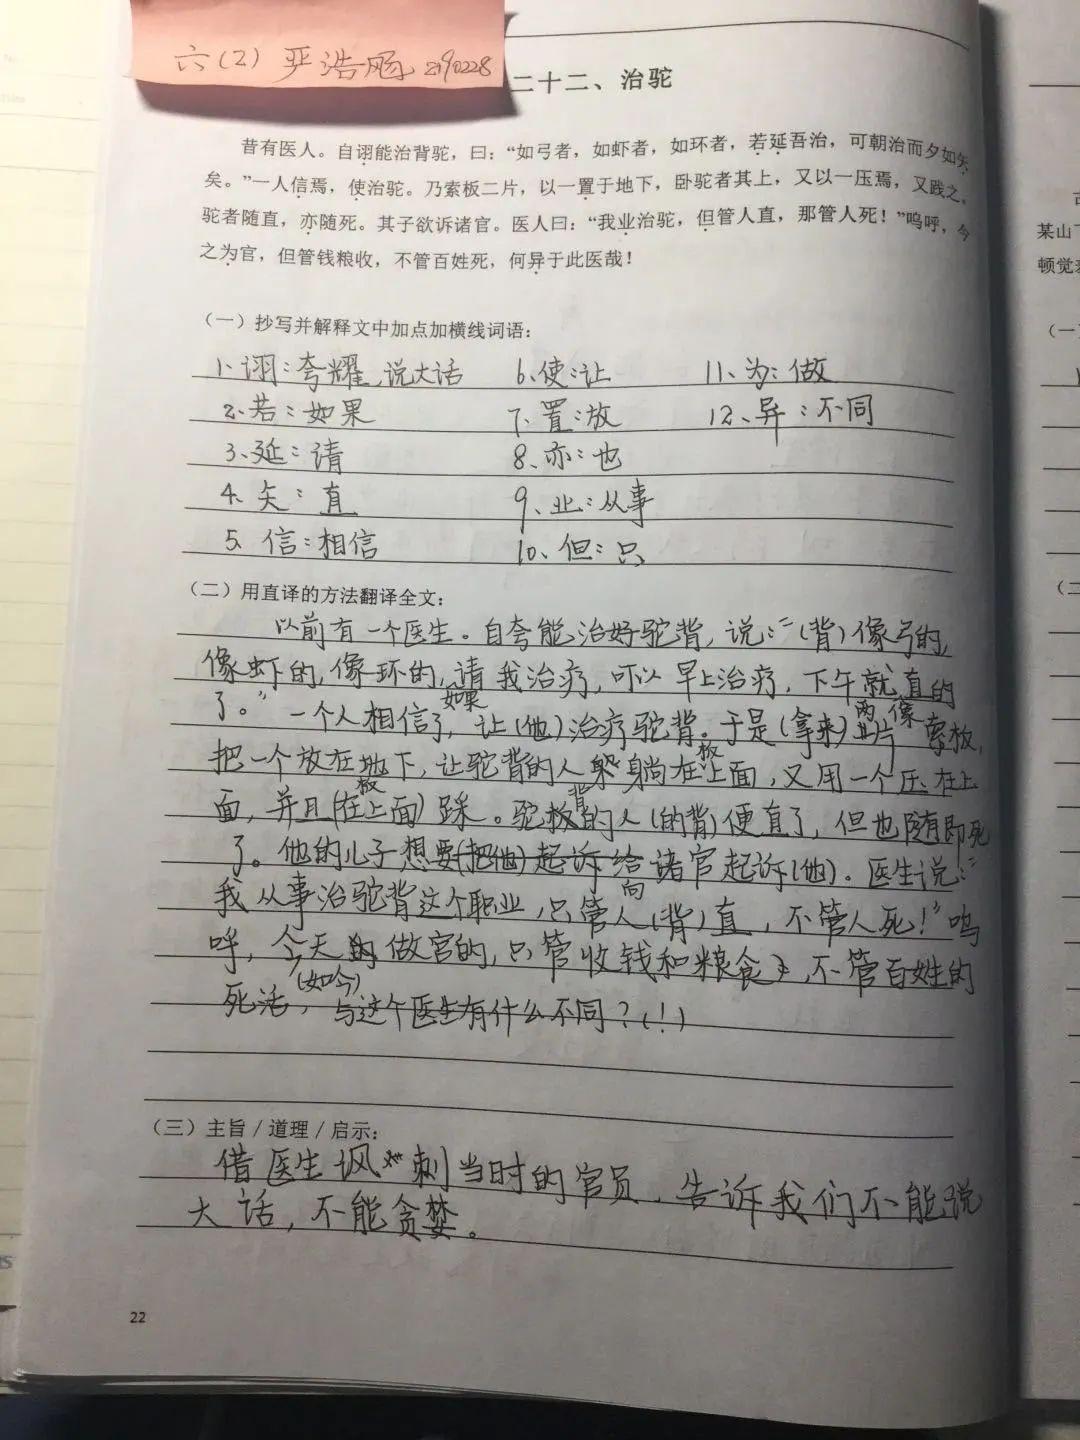 六(2) 严浩旸 2190228
二十二、治驼
昔有医人。自诩能治背驼，曰：“如弓者，如虾者，如环者，若延吾治，可朝治而夕如矢
矣。”一人信焉，使治驼。乃索板二片，以一置于地下，卧驼者其上，又以一压焉，又践之。
驼者随直，亦随死。其子欲诉诸官。医人曰：“我业治驼，但管人直，那管人死！”呜呼，今
之为官，但管钱粮收，不管百姓死，何异于此医哉！
（一）抄写并解释文中加点加横线词语：
1、诩：夸耀，说大话 6、使：让 11、为：做
2、若：如果 7、置：放 12、异：不同
3、延：请 8、亦：也
4、矢：直 9、业：从事
5、信：相信 10、但：只
（二）用直译的方法翻译全文：
以前有一个医生。自夸能治好驼背，说：“（背）像弓的，
像虾的，像环的，请我治疗，可以早上治疗，下午就直的
如果 像
了。”一个人相信了，让（他）治疗驼背。于是（拿来）两片索板，
把一个放在地下，让驼背的人躺在板上面，又用一个压在上
面，并且（在板上面）踩。驼背的人（的背）便直了，但也随即死
了。他的儿子想要（把他）起诉给诸官起诉（他）。医生说：“
向
我从事治驼背这个职业，只管人（背）直，不管人死！”呜
呼，今天的做官的，只管收钱和粮食，不管百姓的
（如今）
死活，与这个医生有什么不同？（！）
（三）主旨/道理/启示：
借医生讽刺当时的官员，告诉我们不能说
大话，不能贪婪。
22
某山下
顿觉
（一）
（二